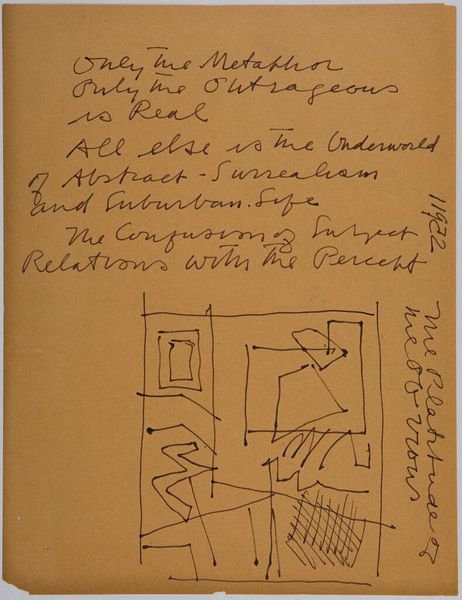 Only the Metaphor
Only the Outrageous
is Real
All else is the Underworld
of Abstract-Surrealism
and Suburban.Life
The Confusion of Subject
Relations with the Percept
The Platitude of
the Obvious